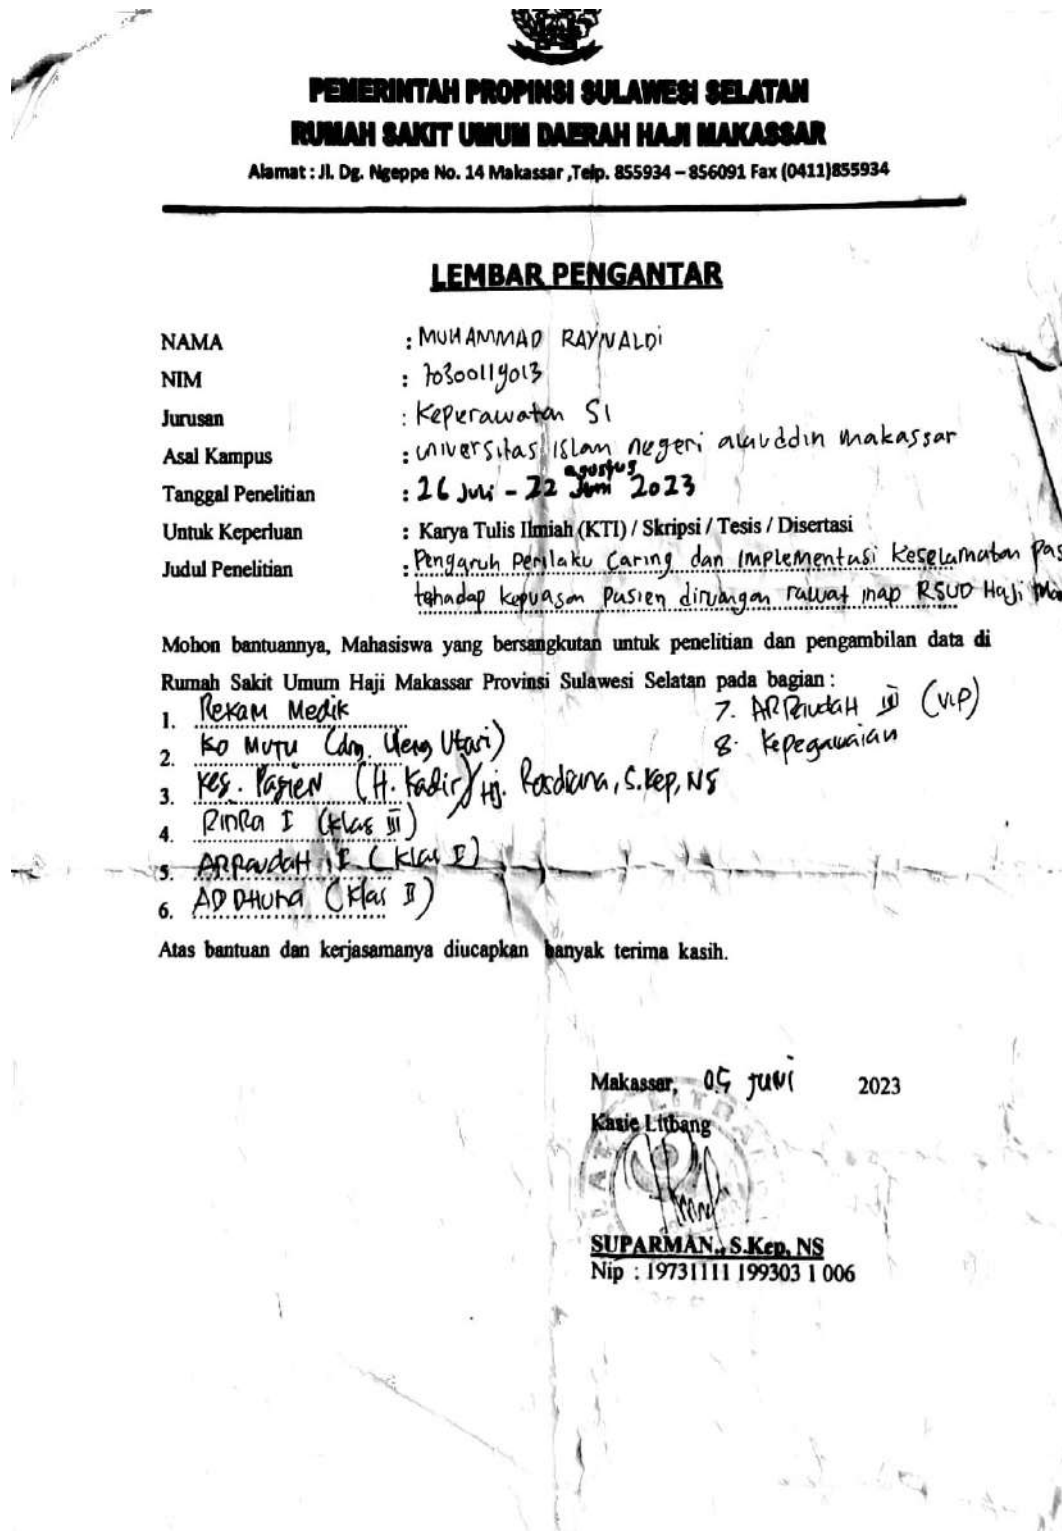 PEMERINTAH PROPINSI SULAWESI SELATAN
RUMAH SAKIT UMUM DAERAH HAJI MAKASSAR
Alamat : Jl. Dg. Ngeppe No. 14 Makassar ,Telp. 855934 – 856091 Fax (0411)855934
LEMBAR PENGANTAR
NAMA : MUHAMMAD RAYNALDI
NIM : 70300119013
Jurusan : Keperawatan S1
Asal Kampus : universitas islam negeri alauddin makassar
agustus
Tanggal Penelitian : 26 Juli - 22 Juni 2023
Untuk Keperluan : Karya Tulis Ilmiah (KTI) / Skripsi / Tesis / Disertasi
Judul Penelitian : Pengaruh Perilaku Caring dan Implementasi Keselamatan Pas
tehadap kepuasan pasien diruangan rawat inap RSUD Haji Ma
Mohon bantuannya, Mahasiswa yang bersangkutan untuk penelitian dan pengambilan data di
Rumah Sakit Umum Haji Makassar Provinsi Sulawesi Selatan pada bagian :
1. Rekam Medik
2. KO MUTU (drg. Uleng Utari)
3. Kes. Pasien (H. Kadir) / Hj. Rosdiana, S.Kep, NS
4. RINRA I (Klas III)
5. ARRaudah II (Klas I)
6. AD DHUHA (Klas II)
7. ARRaudah III (VIP)
8. Kepegawaian
Atas bantuan dan kerjasamanya diucapkan banyak terima kasih.
Makassar, 05 Juni 2023
Kasie Litbang
SUPARMAN., S.Kep, NS
Nip : 19731111 199303 1 006